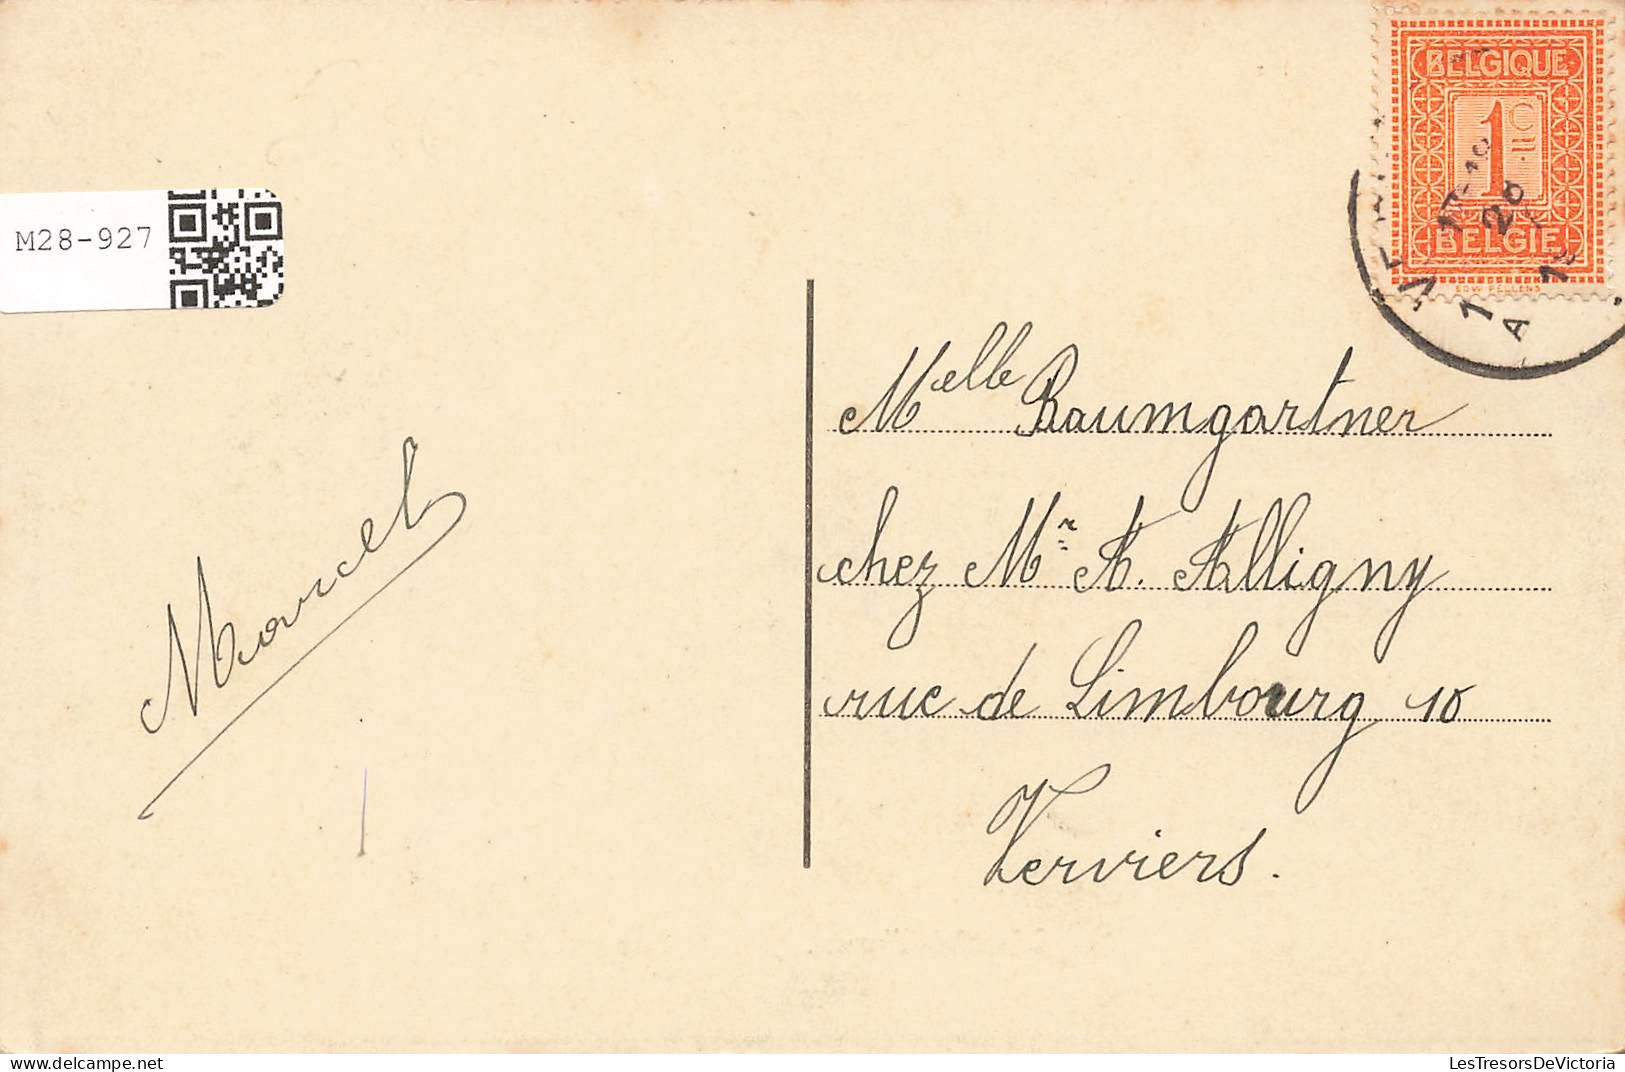 BELGIQUE
1
BELGIE
EDW PELLENS
M28-927
Melle Baumgartner
chez Mr A. Alligny
rue de Limbourg 10
Verviers.
Marcel
LesTresorsDeVictoria